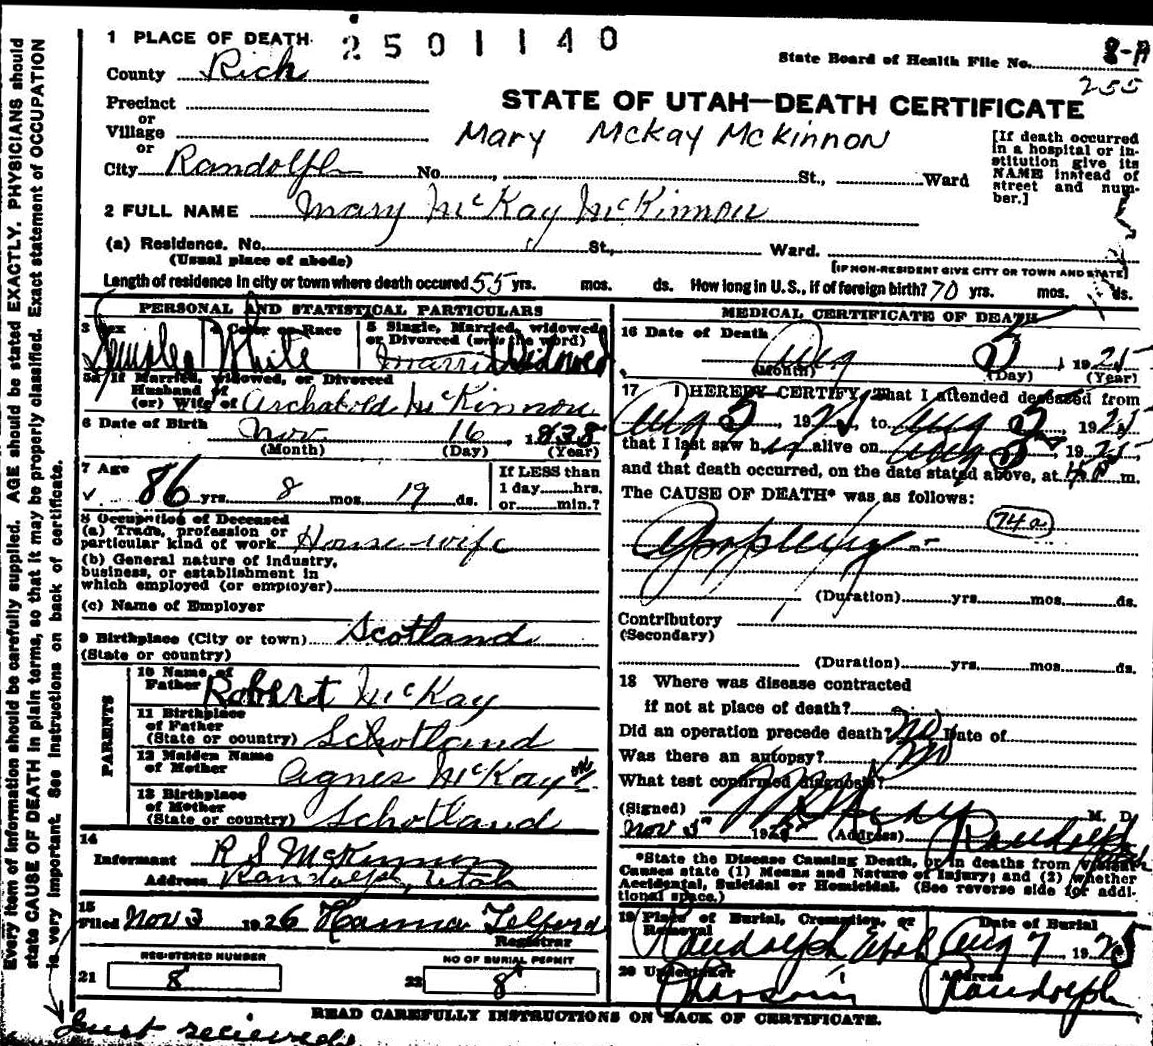 1 PLACE OF DEATH
2501140
8-A
State Board of Health File No.
255
County Rich
STATE OF UTAH—DEATH CERTIFICATE
Precinct
or
Village
or
Mary McKay McKinnon
[If death occurred in a hospital or institution give its NAME instead of street and number.]
City Randolph No. St., Ward
2 FULL NAME Mary McKay McKinnon
(a) Residence. No. St., Ward.
(Usual place of abode)
[IF NON-RESIDENT GIVE CITY OR TOWN AND STATE]
Length of residence in city or town where death occured 55 yrs. mos. ds. How long in U. S., if of foreign birth? 70 yrs. mos. ds.
PERSONAL AND STATISTICAL PARTICULARS
3 Sex 4 Color or Race 5 Single, Married, widowed, or Divorced (write the word)
White Widowed
5a If Married, widowed, or Divorced
Husband of
(or) Wife of Archabold McKinnon
6 Date of Birth Nov. 16, 1838
(Month) (Day) (Year)
7 Age
If LESS than
1 day hrs.
or min.?
86 yrs. 8 mos. 19 ds.
8 Occupation of Deceased
(a) Trade, profession or
particular kind of work Housewife
(b) General nature of industry,
business, or establishment in
which employed (or employer)
(c) Name of Employer
9 Birthplace (City or town) Scotland
(State or country)
PARENTS
10 Name of
Father Robert McKay
11 Birthplace
of Father
(State or country) Schotland
12 Maiden Name
of Mother Agnes McKay
13 Birthplace
of Mother
(State or country) Schotland
14
Informant R S McKinnon
Address Randolph, Utah
15
Filed Nov 3 1926 Hanna Telford
Registrar
REGISTERED NUMBER
21 8
NO OF BURIAL PERMIT
22 8
MEDICAL CERTIFICATE OF DEATH
16 Date of Death
Aug 5, 1925
(Month) (Day) (Year)
17 I HEREBY CERTIFY, That I attended deceased from
Aug 5, 1925, to Aug 5, 1925
that I last saw her alive on Aug 5, 1925
and that death occurred, on the date stated above, at 4 P m.
The CAUSE OF DEATH* was as follows:
74a
Apoplexy
(Duration) yrs. mos. ds.
Contributory
(Secondary)
(Duration) yrs. mos. ds.
18 Where was disease contracted
if not at place of death?
Did an operation precede death? No Date of
Was there an autopsy? No
What test confirmed diagnosis?
(Signed) M. D.
Nov 192 (Address) Randolph
*State the Disease Causing Death, or in deaths from Violent Causes state (1) Means and Nature of Injury; and (2) whether Accidental, Suicidal or Homicidal. (See reverse side for additional space.)
19 Place of Burial, Cremation, or Removal Date of Burial
Randolph Utah Aug 7, 1925
20 Undertaker Address
Randolph
READ CAREFULLY INSTRUCTIONS ON BACK OF CERTIFICATE.
Just recieved
Every item of information should be carefully supplied. AGE should be stated EXACTLY. PHYSICIANS should
state CAUSE OF DEATH in plain terms, so that it may be properly classified. Exact statement of OCCUPATION
is very important. See instructions on back of certificate.